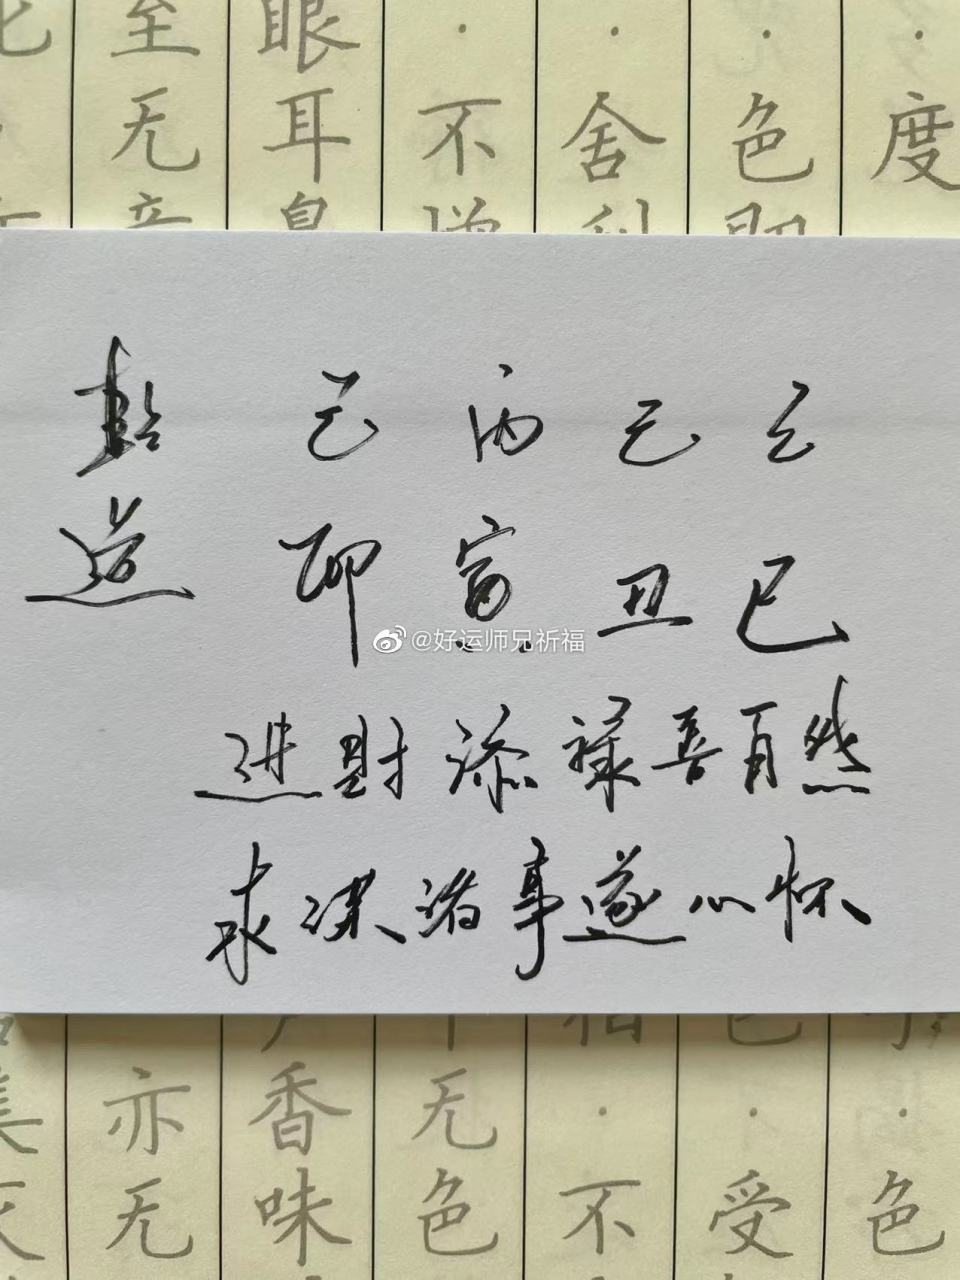 度
色
舍
不
眼耳
至无
乾 己 丙 己 己
造 卯 寅 丑 巳
@好运师兄祈福
进財添禄喜自然
求谋诸事遂心怀
色
受
不
无色
香味
亦无